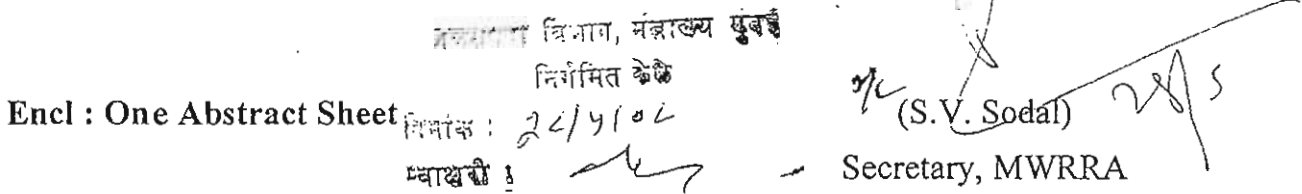 विभाग, मंत्रालय मुंबई
निर्गमित केले
Encl : One Abstract Sheet दिनांक : २८/५/०८ (S.V. Sodal) 28/5
स्वाक्षरी : Secretary, MWRRA